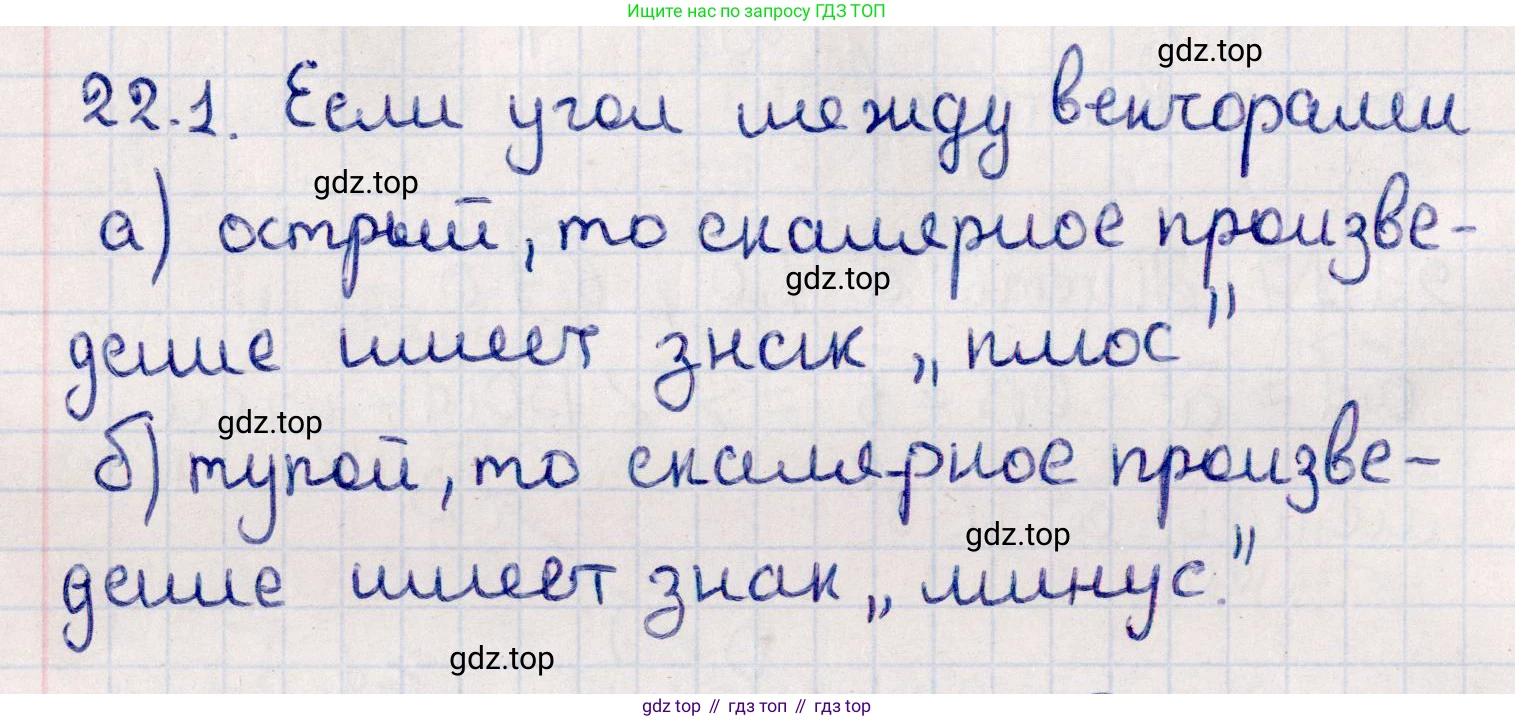 Ищите нас по запросу ГДЗ ТОП
gdz.top
22.1. Если угол между векторами
gdz.top
а) острый, то скалярное произве-
gdz.top
дение имеет знак „плюс"
gdz.top
б) тупой, то скалярное произве-
gdz.top
дение имеет знак „минус."
gdz.top
gdz top // гдз топ // gdz top